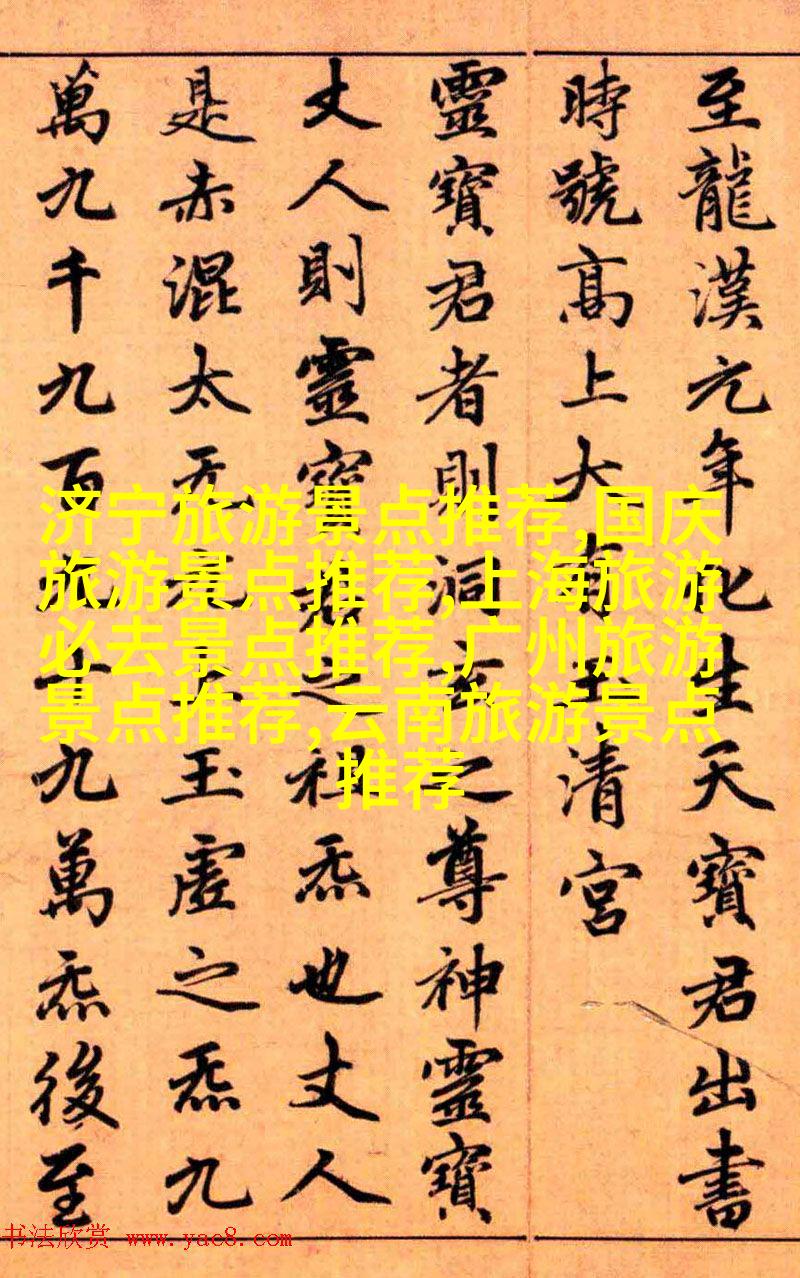 至龍漢元年化生天寶君出書
時號高上大有玉清宮
靈寶君者則洞玄之尊神靈寶
丈人則靈寶君之祖炁也丈人
是赤混太无元无玉虛之炁九
萬九千九百九十九萬炁後至
济宁旅游景点推荐,国庆
旅游景点推荐,上海旅游
必去景点推荐,广州旅游
景点推荐,云南旅游景点
推荐
书法欣赏 www.yac8.com